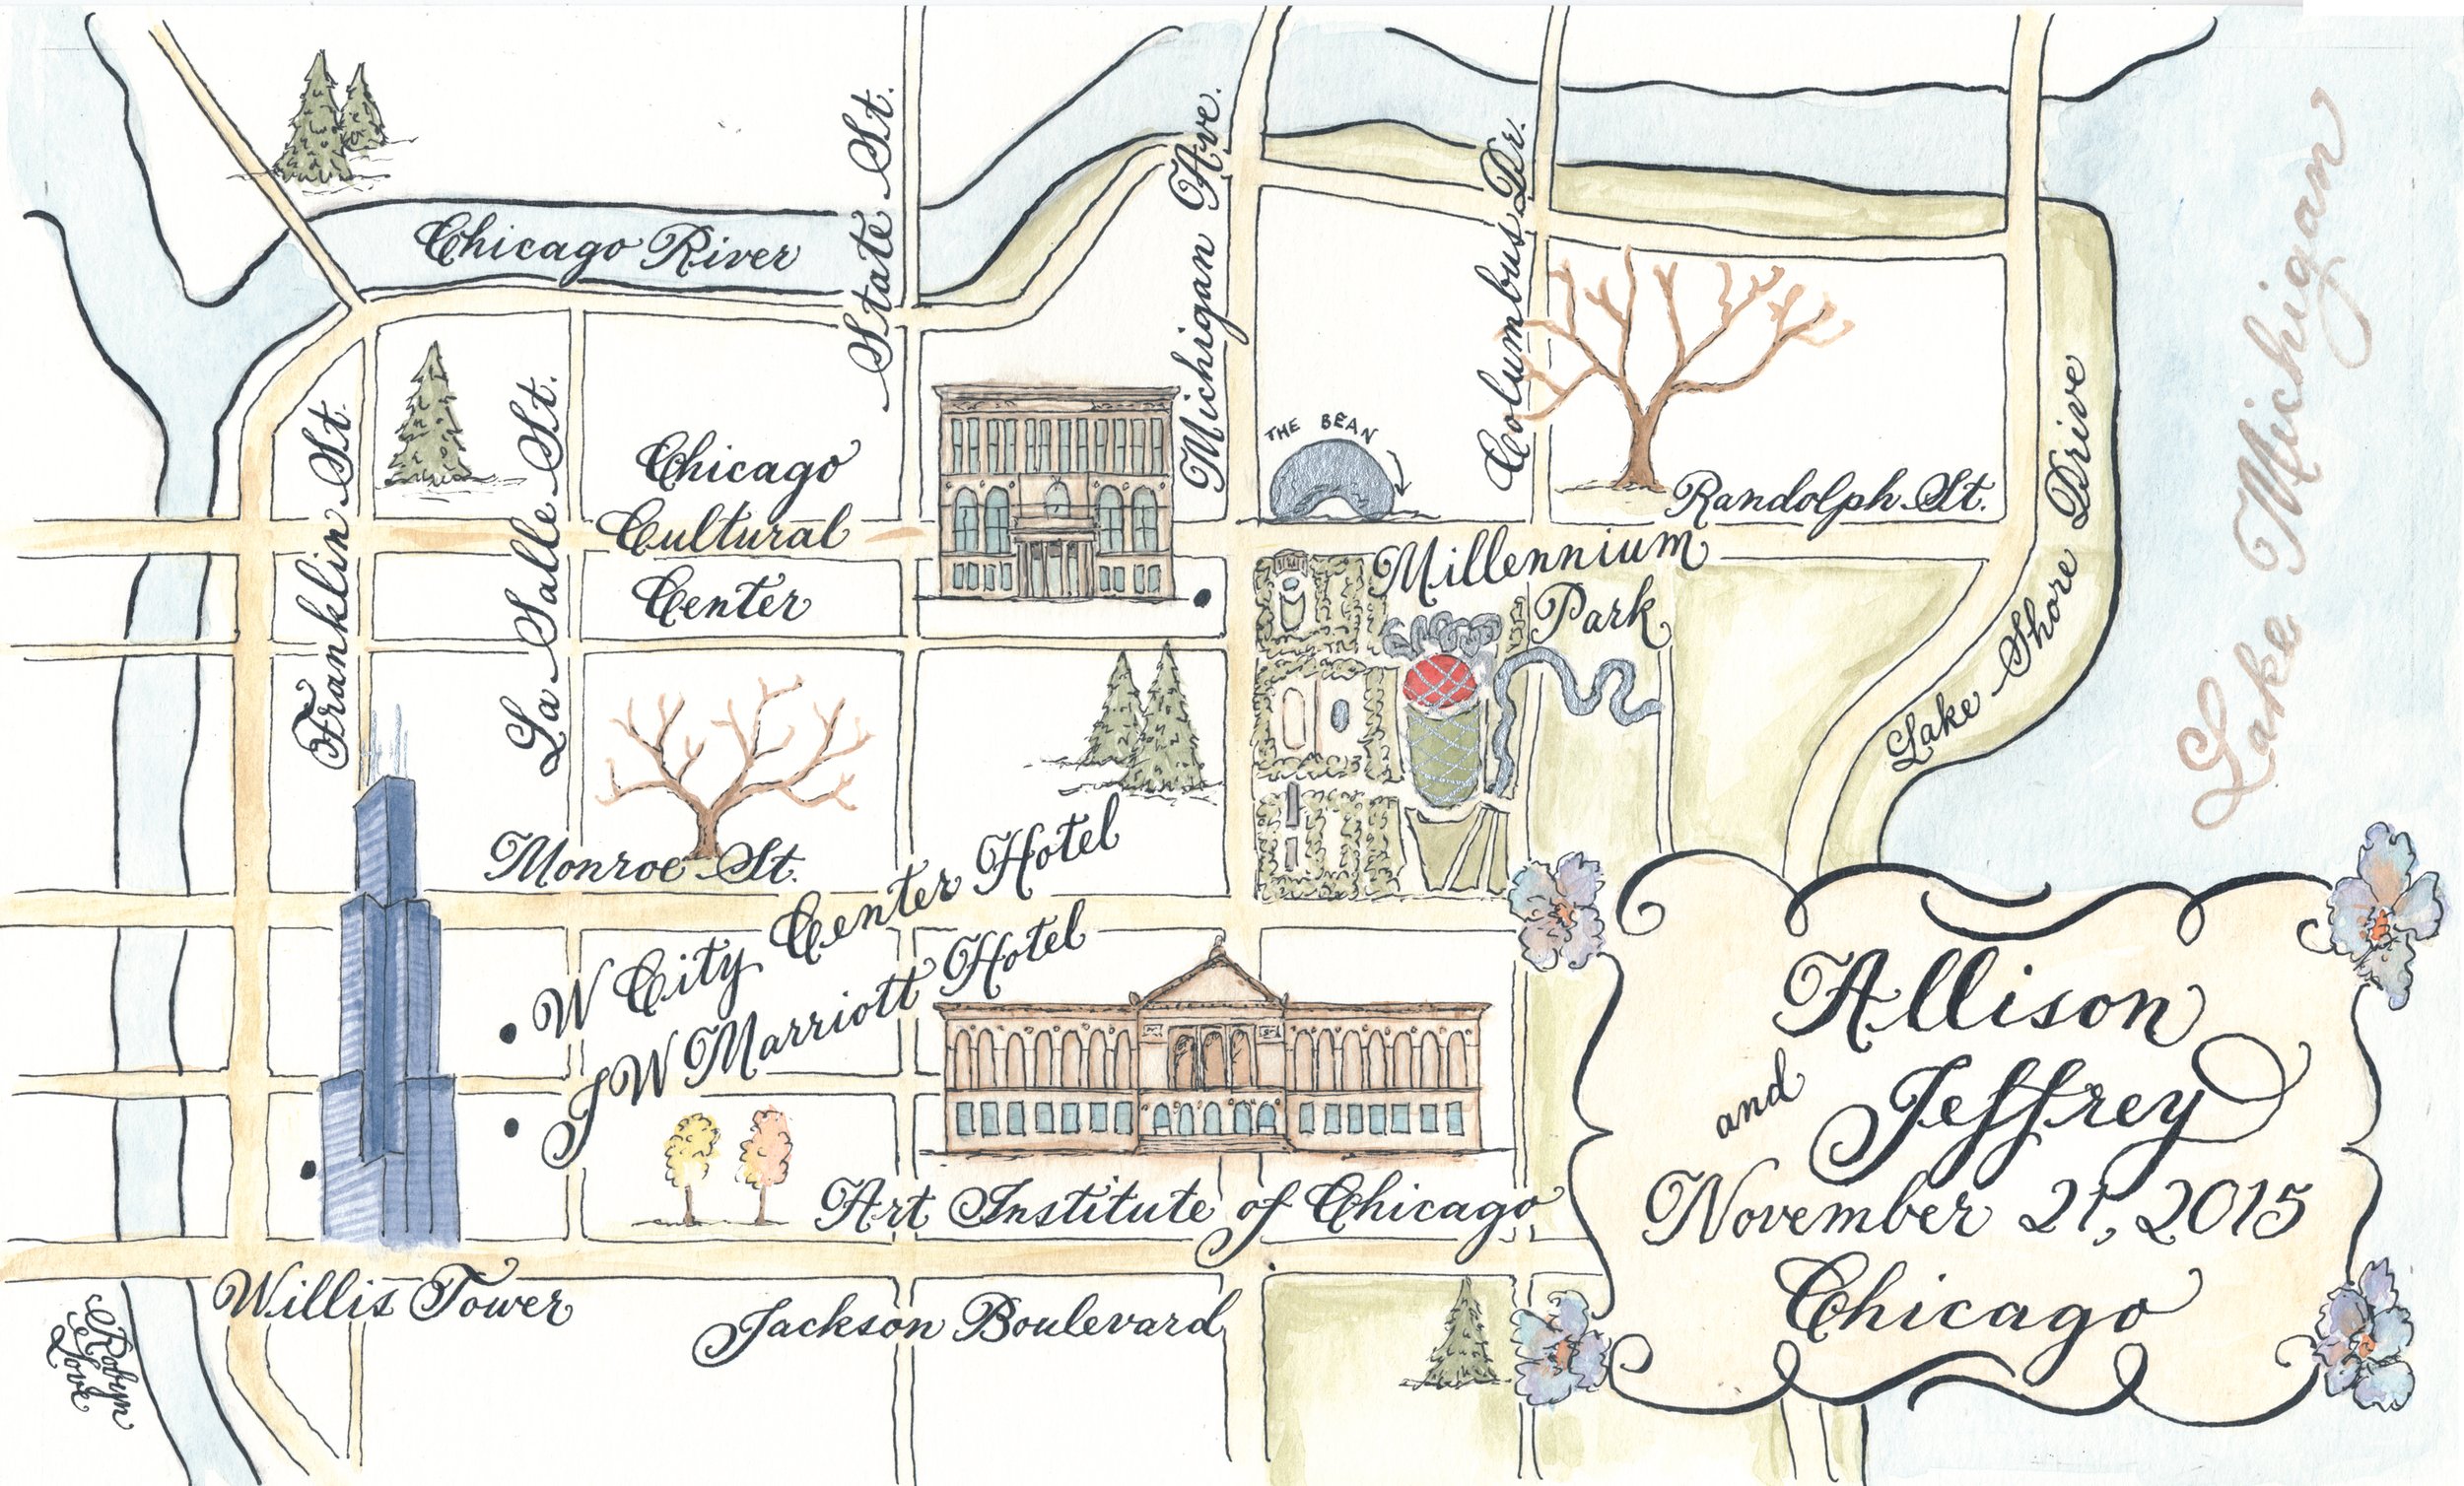 Chicago River
State St.
Michigan Ave.
Columbus Dr.
Lake Michigan
Franklin St.
La Salle St.
Chicago
Cultural
Center
THE BEAN
Randolph St.
Millennium
Park
Lake Shore Drive
Monroe St.
W City Center Hotel
JW Marriott Hotel
Art Institute of Chicago
Willis Tower
Jackson Boulevard
Robyn
Love
Allison
and
Jeffrey
November 21, 2015
Chicago